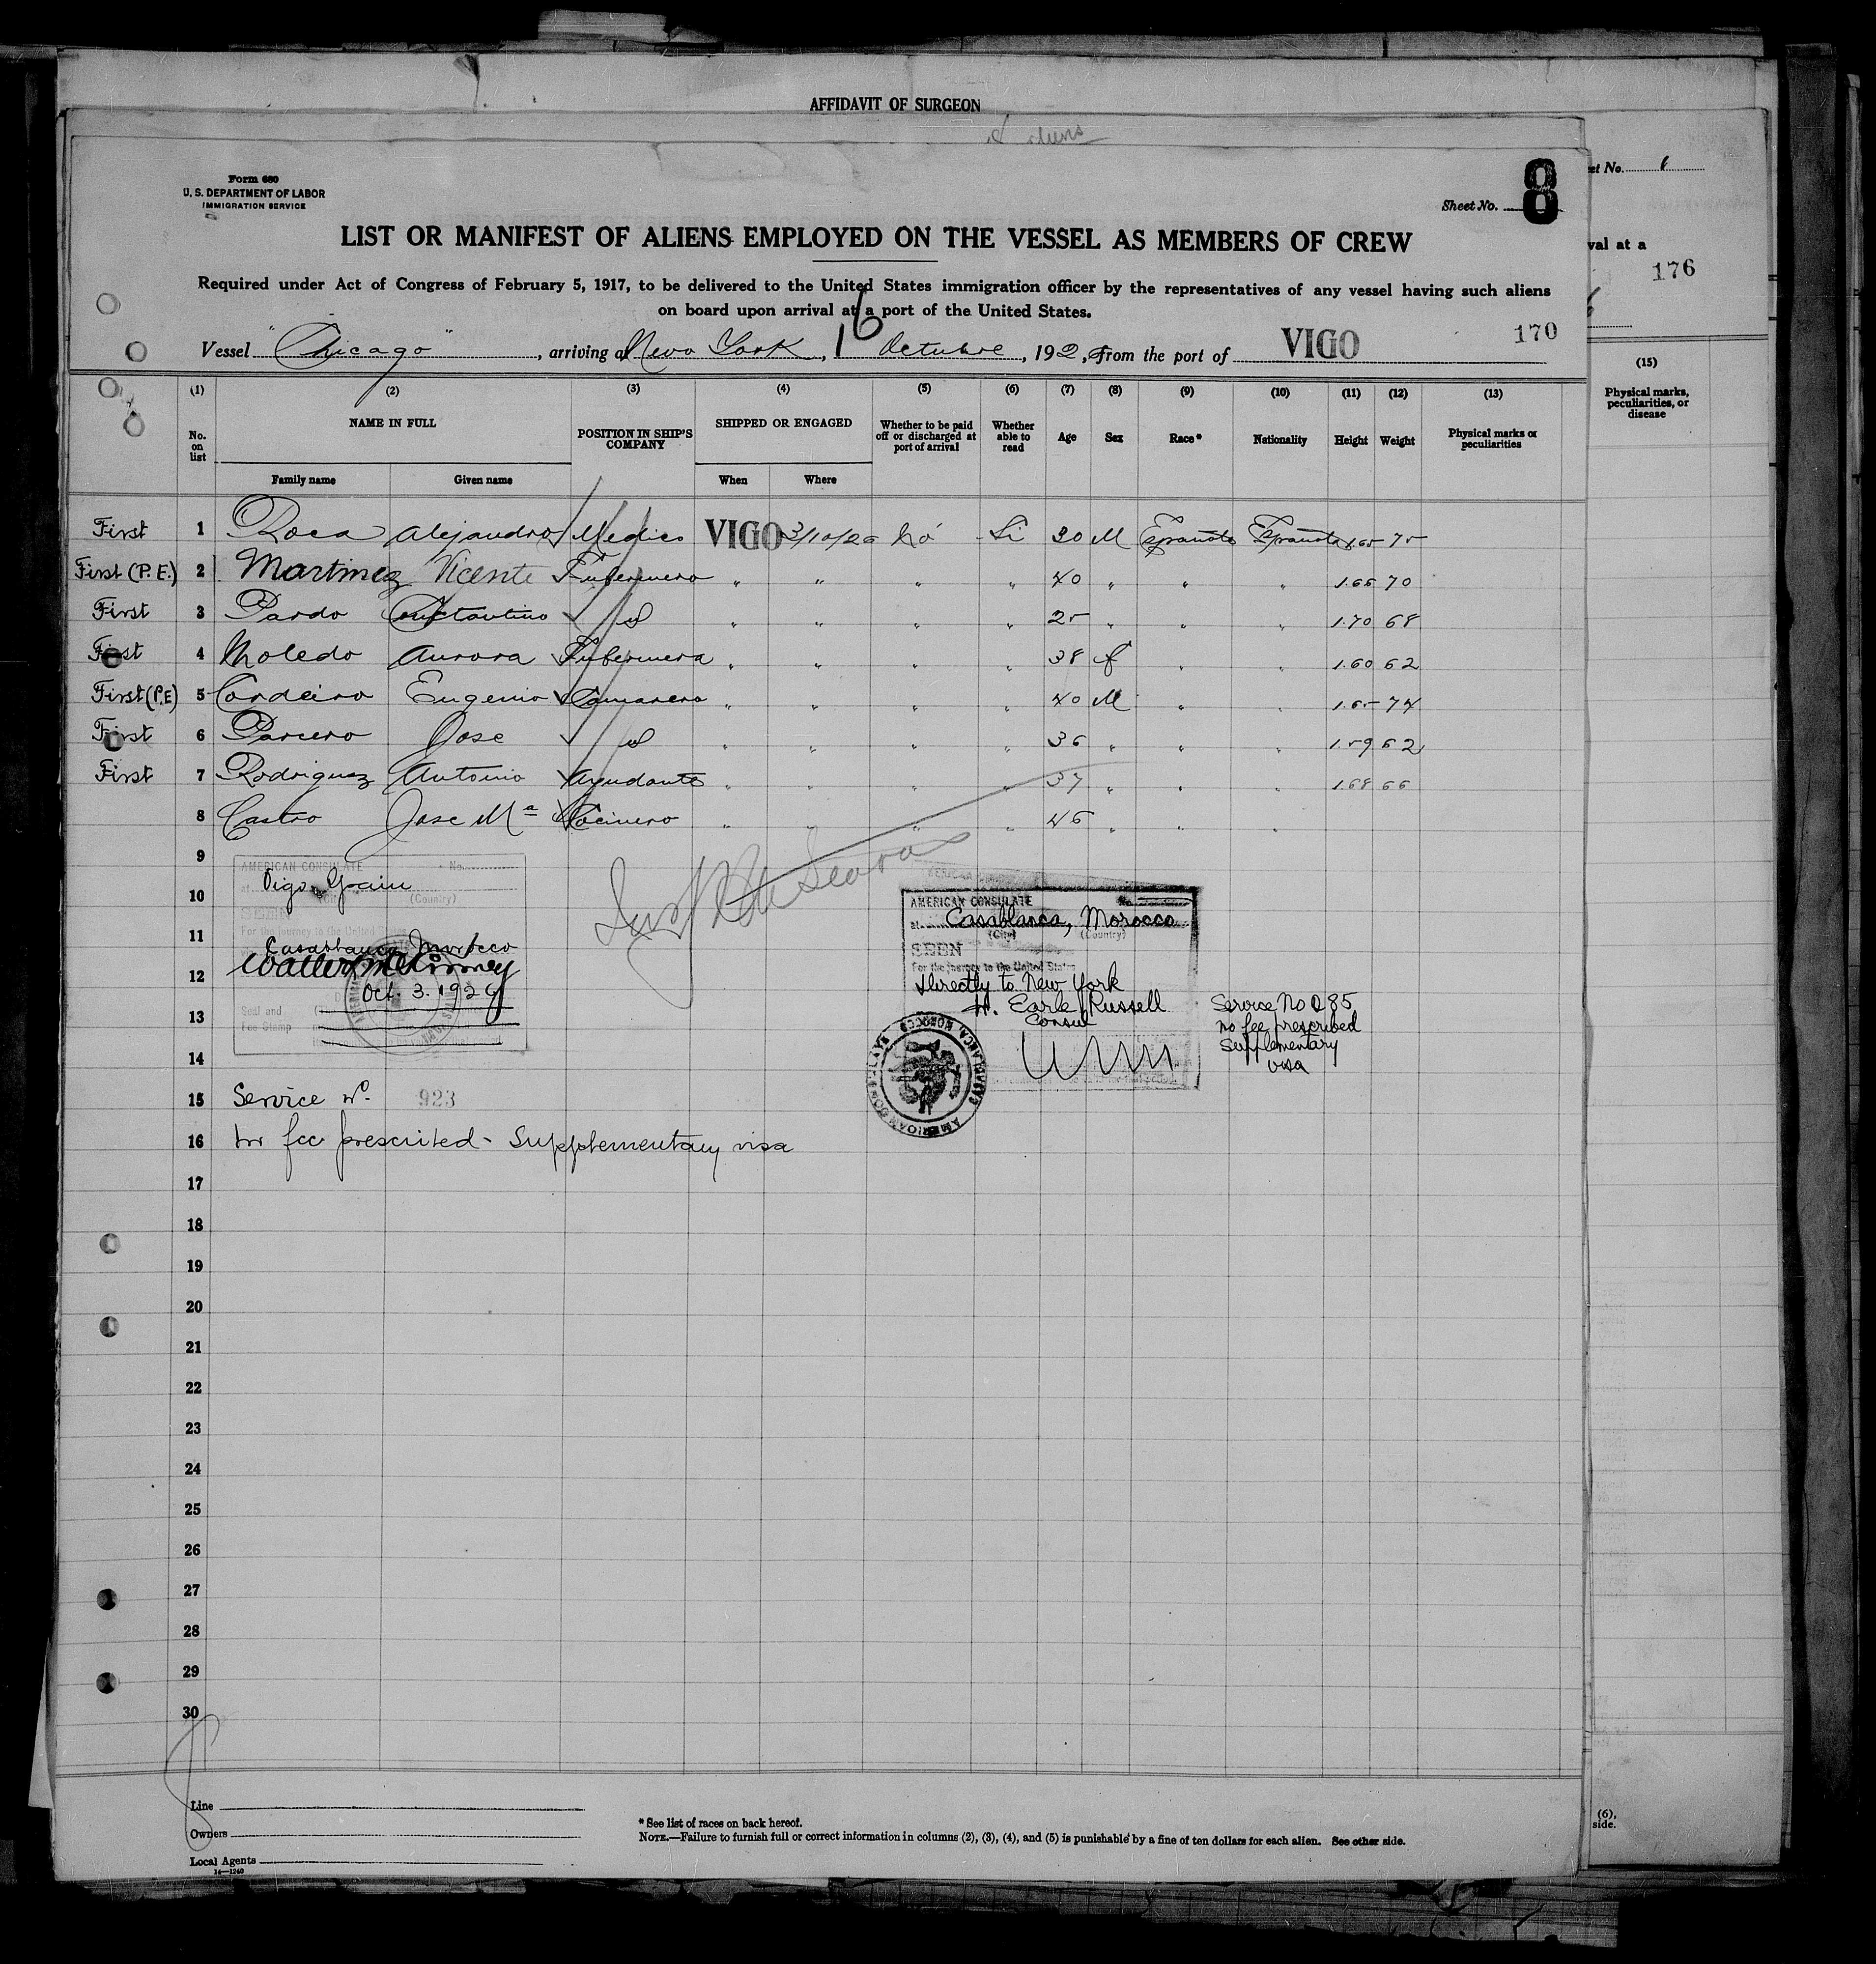 AFFIDAVIT OF SURGEON
Form 680
U. S. DEPARTMENT OF LABOR
IMMIGRATION SERVICE
Sheet No. 8
LIST OR MANIFEST OF ALIENS EMPLOYED ON THE VESSEL AS MEMBERS OF CREW
Required under Act of Congress of February 5, 1917, to be delivered to the United States immigration officer by the representatives of any vessel having such aliens
on board upon arrival at a port of the United States.
170
Vessel "Chicago", arriving at New York, 16 Octubre, 192, from the port of VIGO
(1) (2) (3) (4) (5) (6) (7) (8) (9) (10) (11) (12) (13)
No. on list NAME IN FULL POSITION IN SHIP'S COMPANY SHIPPED OR ENGAGED Whether to be paid off or discharged at port of arrival Whether able to read Age Sex Race* Nationality Height Weight Physical marks or peculiarities
Family name Given name When Where
First 1 Roca Alejandro Medico VIGO 3/10/2 No Si 30 M Española Española 1.65 75
First (P.E.) 2 Martinez Vicente Enfermero " " " " 40 " " " 1.66 70
First 3 Pardo Constantino id " " " " 25 " " " 1.70 68
First 4 Moledo Aurora Enfermera " " " " 38 f " " 1.60 62
First (P.E) 5 Cordeiro Eugenio Camarero " " " " 40 M " " 1.65 74
First 6 Parcero Jose id " " " " 36 " " " 1.59 62
First 7 Rodriguez Antonio Ayudante " " " " 37 " " " 1.68 66
8 Castro Jose Mª Cocinero " " " " 46 " " "
9
10
11
12
13
14
15
16
17
18
19
20
21
22
23
24
25
26
27
28
29
30
AMERICAN CONSULATE No.
at Vigo, Spain
(City) (Country)
SEEN
For the journey to the United States
Casablanca Morocco
Walter McKinney
Oct. 3. 192
Seal and
Fee Stamp
Service No. 923
No fee prescribed - Supplementary visa
AMERICAN CONSULATE No.
at Casablanca, Morocco
(City) (Country)
SEEN
For the journey to the United States
directly to New York
H. Earle Russell
Consul
Service No 285
no fee prescribed
Supplementary
visa
AMERICAN CONSULATE CASABLANCA, MOROCCO
Line
Owners
Local Agents
14—1240
* See list of races on back hereof.
NOTE.—Failure to furnish full or correct information in columns (2), (3), (4), and (5) is punishable by a fine of ten dollars for each alien. See other side.
et No.
val at a
176
(15)
Physical marks, peculiarities, or disease
(6),
side.